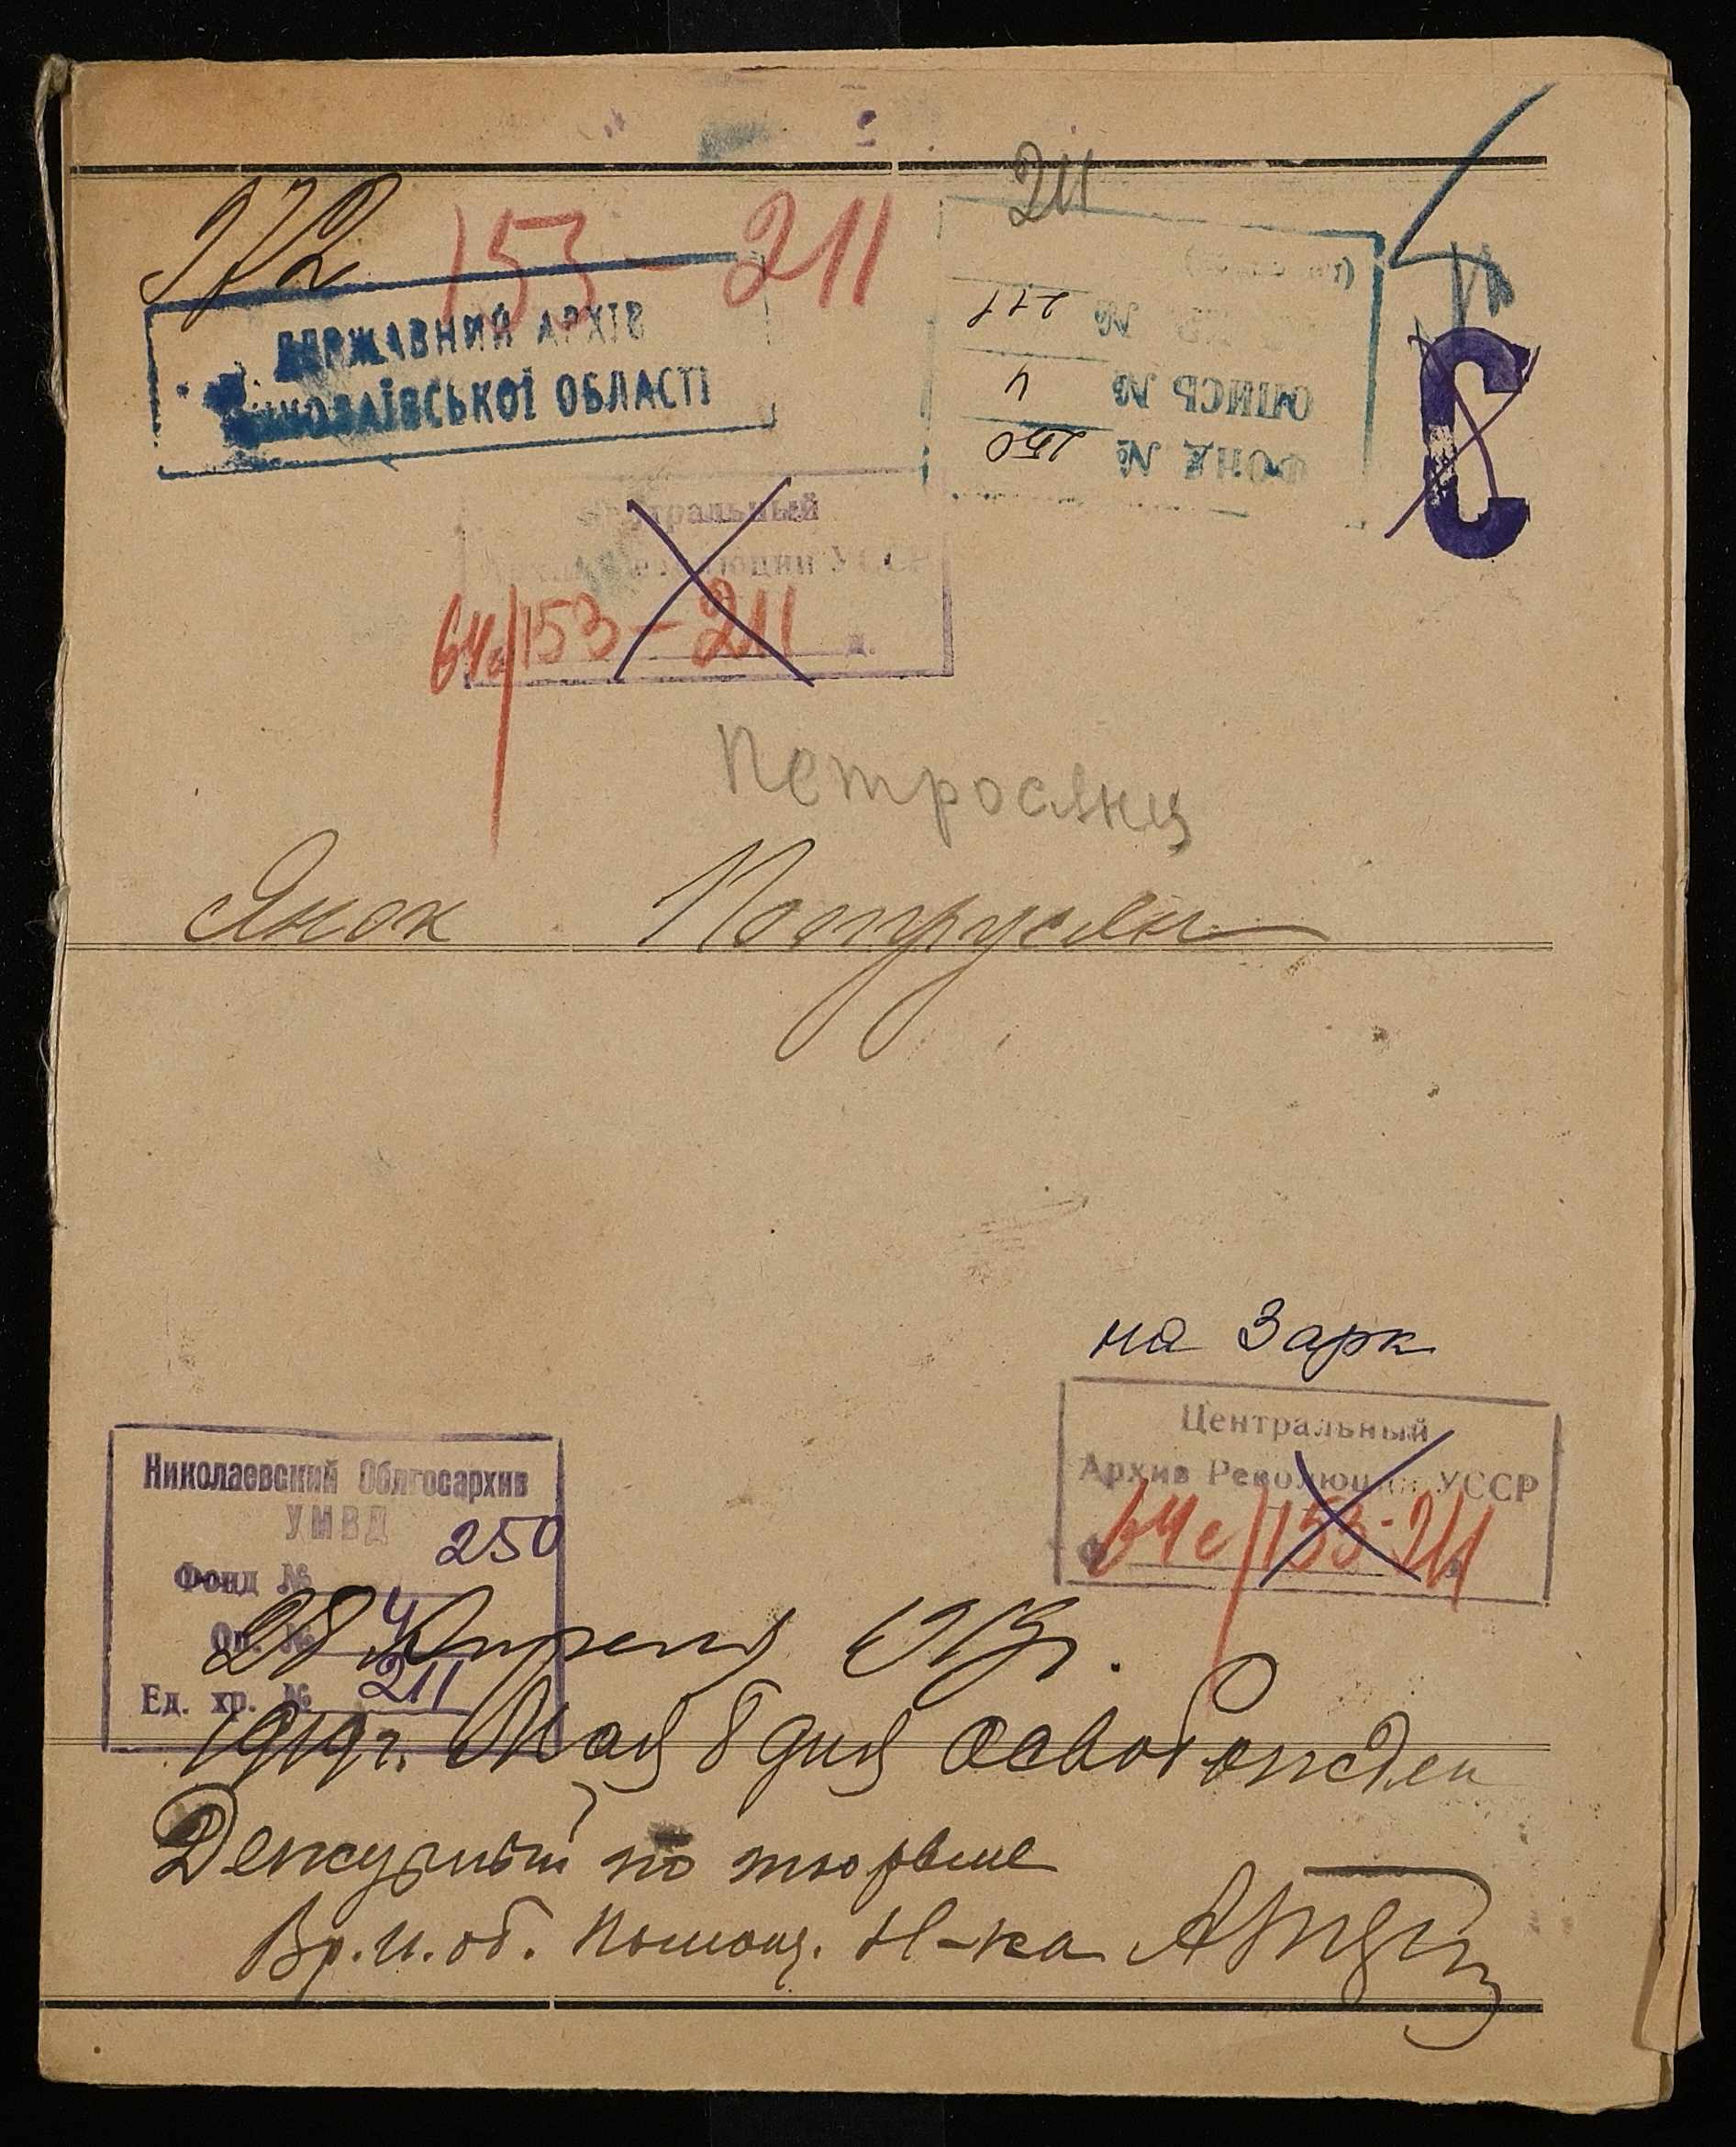 211
972
153-211
ДЕРЖАВНИЙ АРХІВ
МИКОЛАЇВСЬКОЇ ОБЛАСТІ
ФОНД № 250
ОПИСЬ № 4
№ 211
С
Центральный
Архив Революции УССР
64с/153-211
д.
Петросянц
Янок Потрусян
на Зарк
Центральный
Архив Революции УССР
64с/153-211
Николаевский Облгосархив
УМВД
Фонд № 250
Оп. № 4
Ед. хр. № 211
28 Апреля 1919г.
1919г. Мая 8 дня освобожден
Дежурный по тюрьме
Вр. и. об. Помощ. Н-ка